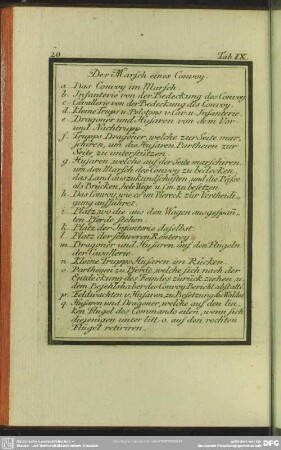 20
Tab IX.
Der Marsch eines Convoy.
a. Das Convoy im Marsch.
b. Infanterie von der Bedeckung des Convoy
c. Cavallerie von der Bedeckung des Convoy.
d. Kleine Trups u. Pelotons v. Cav. u. Infanterie.
e. Dragoner und Husaren von dem Vor-
und Nachtrupp.
f. Trupps Dragoner, welche zur Seite mar-
schiren, um die Husaren Partheien zur
Seite zu unterstützen.
g. Husaren welche auf der Seite marschiren,
um den Marsch der Convoy zu bedecken,
das Land auszukundschaften, und die Pässe
als Brücken, hole Wege u. s. w. zu besetzen
h. Das Convoy, wie es im Viereck zur Vertheidi-
gung auffähret.
i. Platz wo die aus den Wagen ausgespan-
ten Pferde stehen.
k. Platz der Infanterie daselbst.
l. Platz der schweren Reuterey.
m. Dragoner und Husaren auf den Flügeln
der Cavallerie.
n. Kleine Trupps Husaren im Rücken.
o. Partheyen zu Pferde, welche sich nach der
Entdeckung des Feindes zurück ziehen, u.
dem Befehlshaber des Convoy Bericht abstatten
p. Feldwachten v. Husaren, zu Besetzung des Waldes
q. Husaren und Dragoner, welche auf den lin-
ken Flügel des Commando eilen, wenn sich
diejenigen unter litt. o. auf den rechten
Flügel retiriren.
DFG